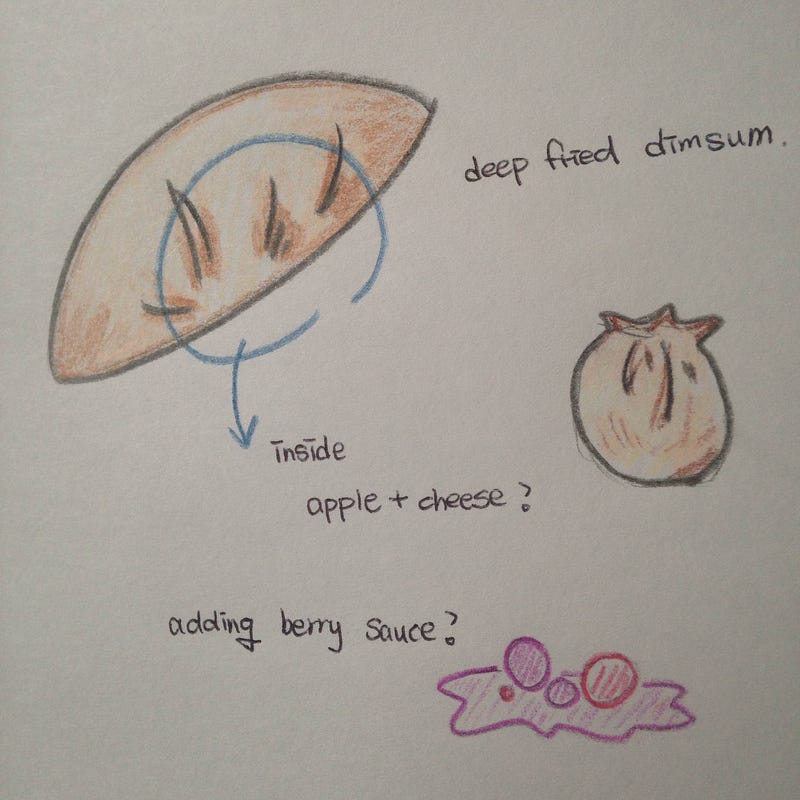 deep fried dimsum.
inside
apple + cheese?
adding berry sauce?